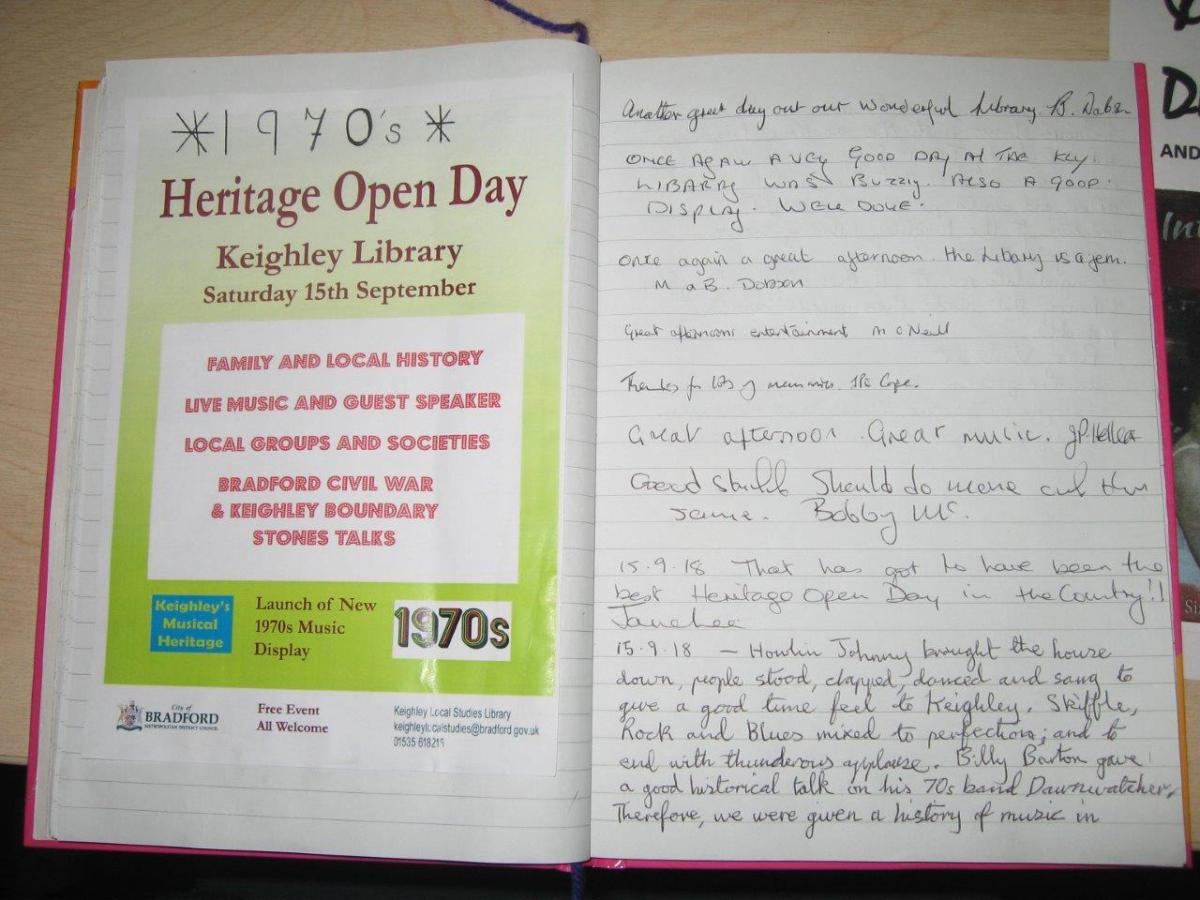 *1970's*
Heritage Open Day
Keighley Library
Saturday 15th September
FAMILY AND LOCAL HISTORY
LIVE MUSIC AND GUEST SPEAKER
LOCAL GROUPS AND SOCIETIES
BRADFORD CIVIL WAR
& KEIGHLEY BOUNDARY
STONES TALKS
Keighley's
Musical
Heritage
Launch of New
1970s Music
Display
1970s
City of
BRADFORD
METROPOLITAN DISTRICT COUNCIL
Free Event
All Welcome
Keighley Local Studies Library
keighleylocalstudies@bradford.gov.uk
01535 618215
Another great day out our wonderful Library. B.
ONCE AGAIN A VEY GOOD DAY AT THE KLY.
LIBARRY WAS BUZZIG. ALSO A GOOD.
DISPLAY. WELL DONE.
Once again a great afternoon. the Libary is a jem.
M a B. Dobson
Great afternoons entertainment M c Neill
Thanks for lots of memories. Cope.
Great afternoon. Great music. J.P.
Good Should do more of the
same. Bobby Mc.
15.9.18 That has got to have been the
best Heritage Open Day in the Country!!
Jane Lee
15.9.18 — Howlin Johnny brought the house
down, people stood, clapped, danced and sang to
give a good time feel to Keighley. Skiffle,
Rock and Blues mixed to perfection; and to
end with thunderous applause. Billy Barton gave
a good historical talk on his 70s band Dawnwatcher.
Therefore, we were given a history of music in
AND